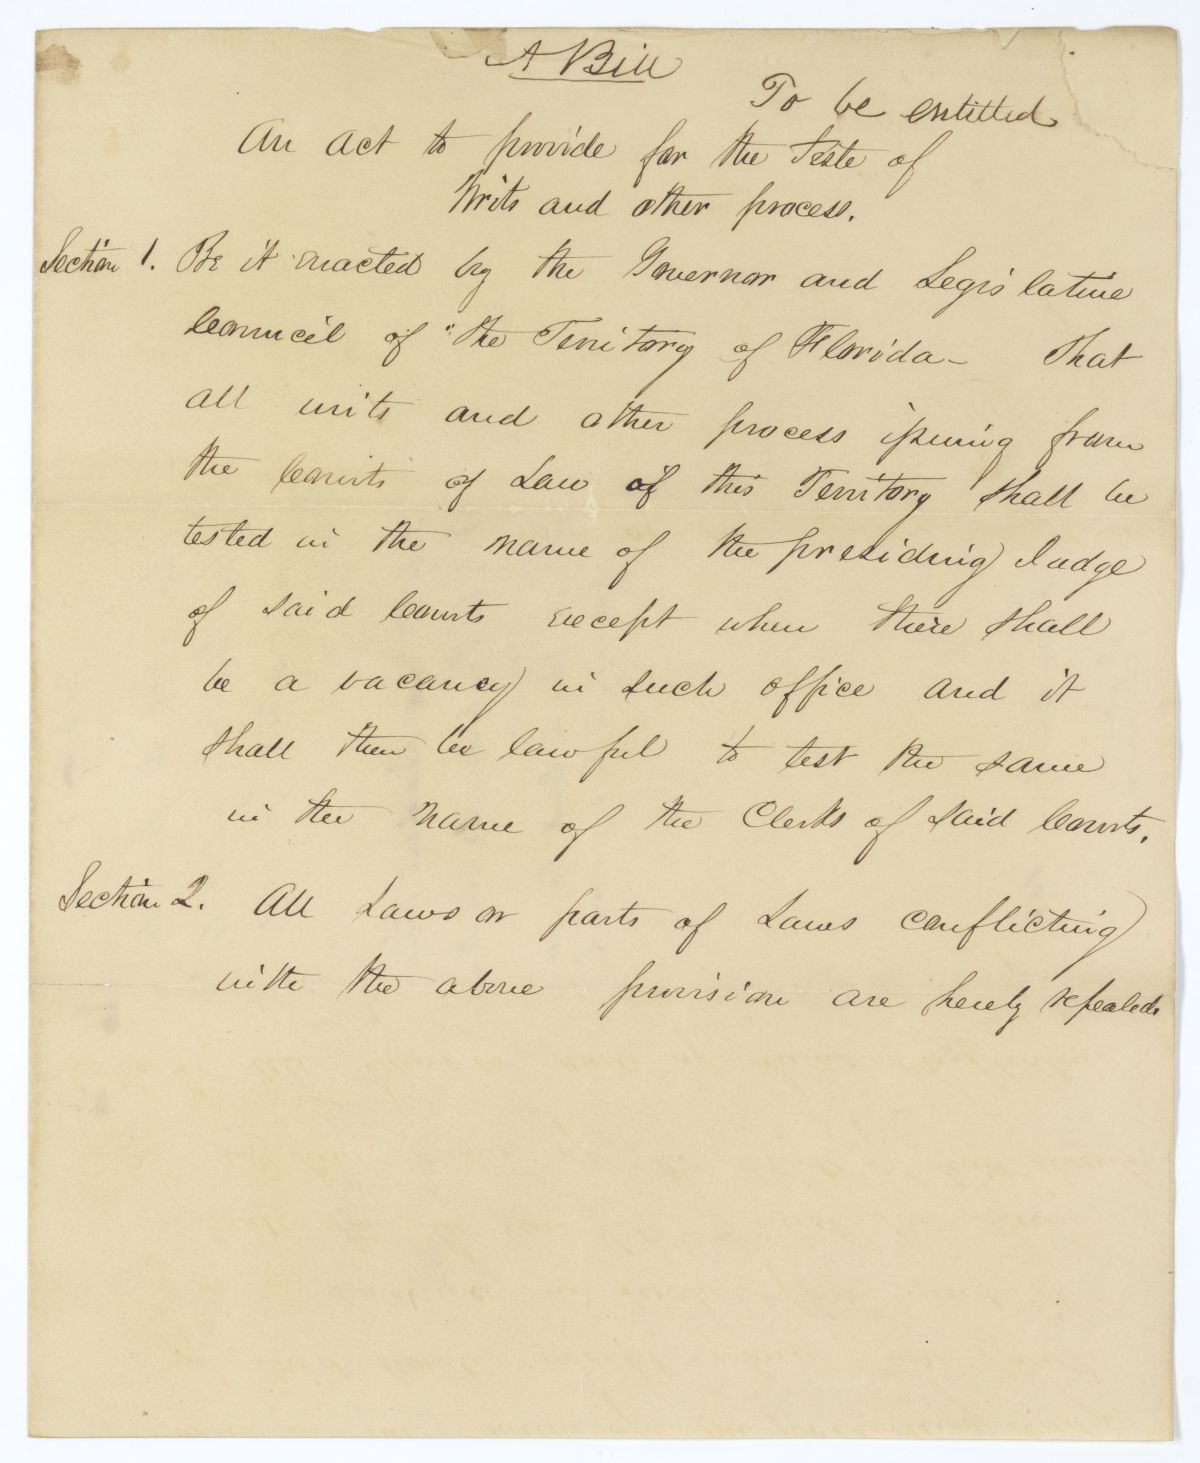 A Bill
To be entitled
An act to provide for the Teste of
Writs and other process.
Section 1. Be it enacted by the Governor and Legislative
Council of the Territory of Florida - That
all writs and other process issuing from
the Courts of Law of this Territory shall be
tested in the name of the presiding Judge
of said Courts except when there shall
be a vacancy in such office and it
shall then be lawful to test the same
in the name of the Clerks of said Courts.
Section 2. All Laws or parts of Laws conflicting
with the above provision are hereby repealed